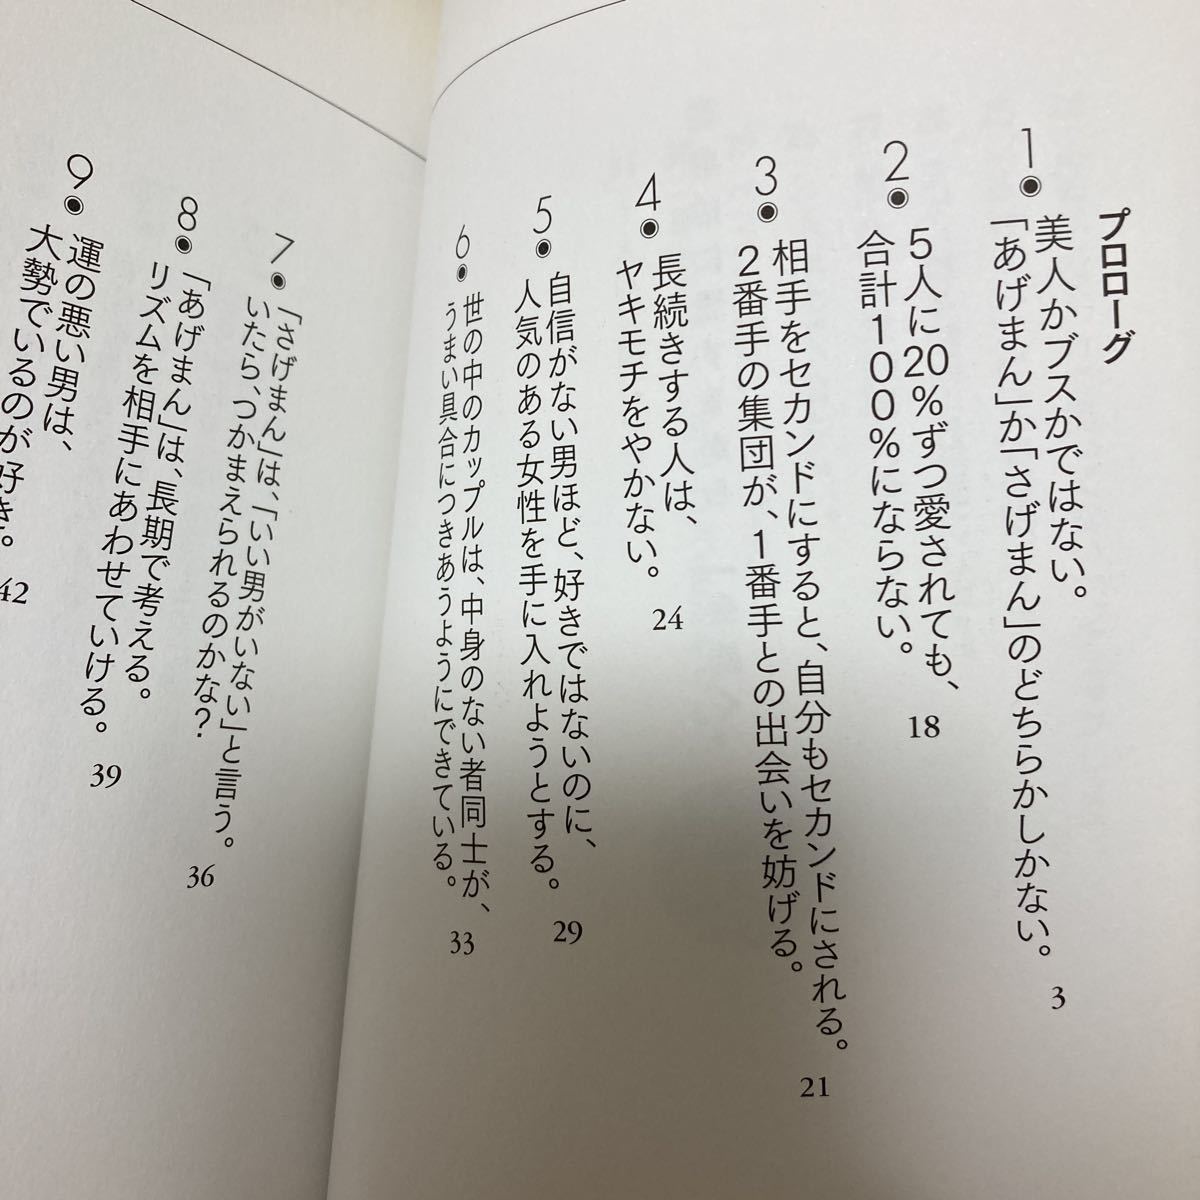 プロローグ
1
美人かブスかではない。
「あげまん」か「さげまん」のどちらかしかない。
3
2
5人に20%ずつ愛されても、
合計100%にならない。
18
3
相手をセカンドにすると、自分もセカンドにされる。
2番手の集団が、1番手との出会いを妨げる。
21
4
長続きする人は、
ヤキモチをやかない。
24
5
自信がない男ほど、好きではないのに、
人気のある女性を手に入れようとする。
29
6
世の中のカップルは、中身のない者同士が、
うまい具合につきあうようにできている。
33
7
「さげまん」は、「いい男がいない」と言う。
いたら、つかまえられるのかな?
36
8
「あげまん」は、長期で考える。
リズムを相手にあわせていける。
39
9
運の悪い男は、
大勢でいるのが好き。
42